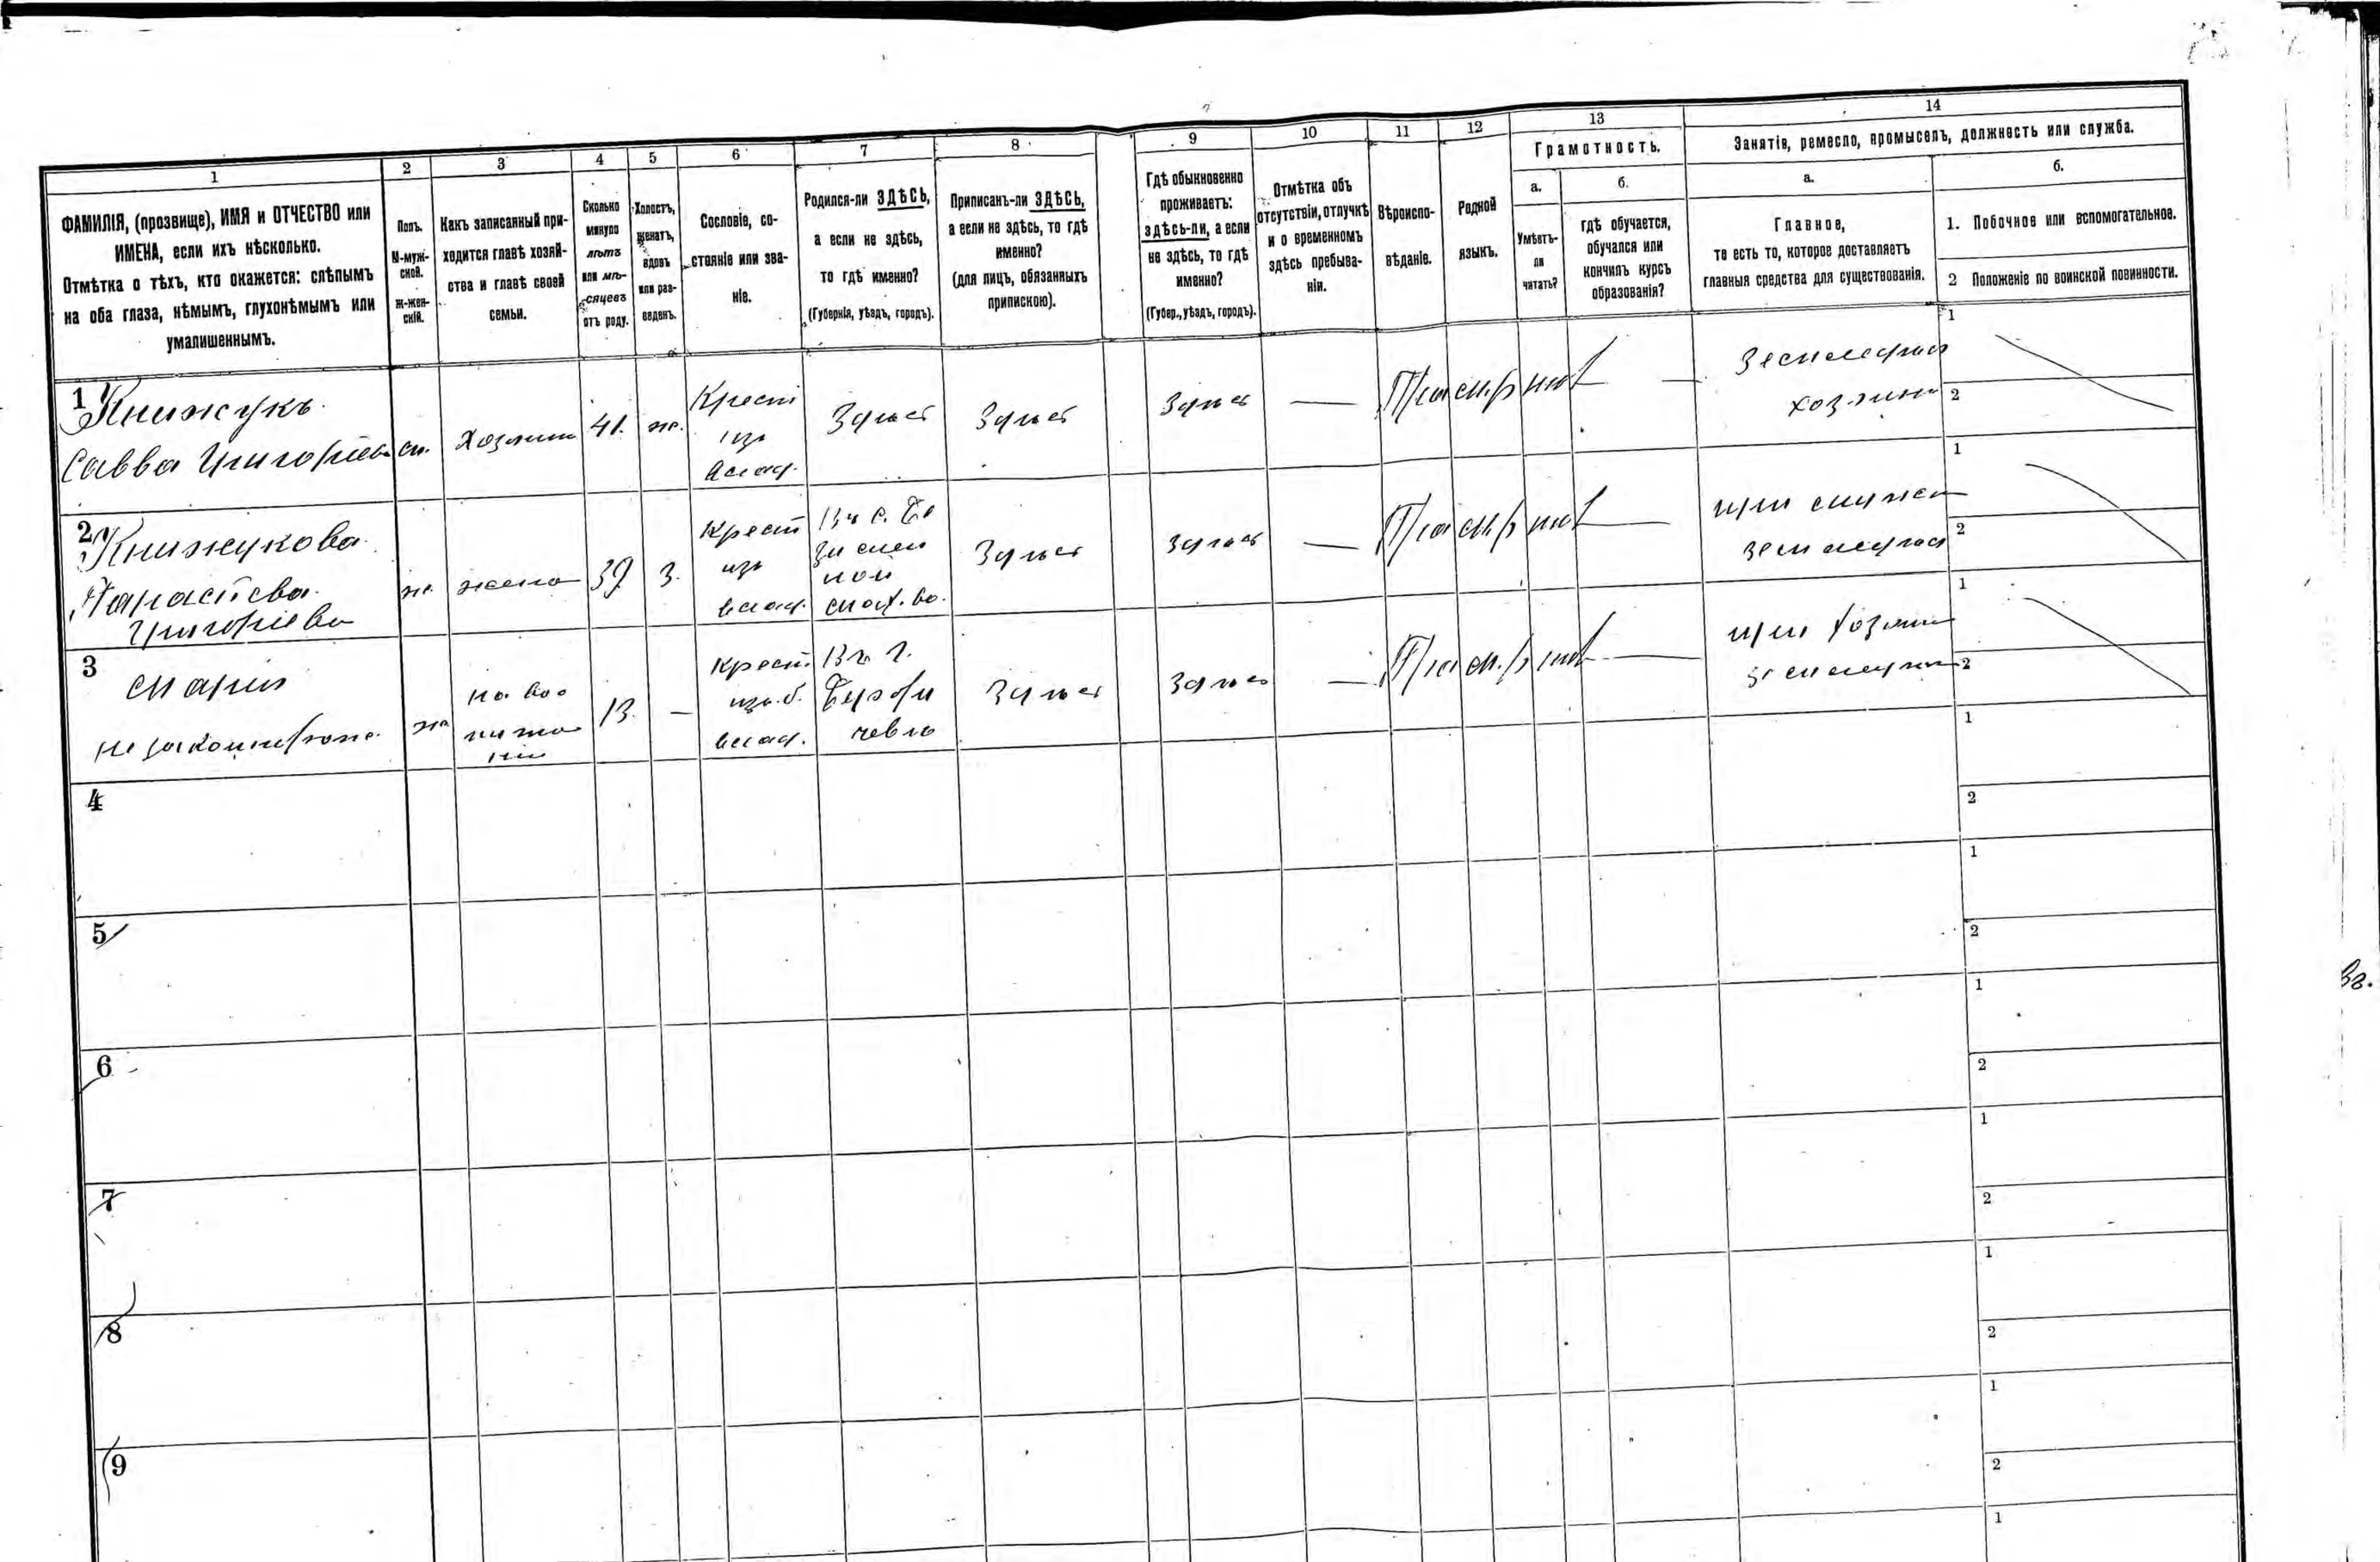 1
2
3
4
5
6
7
8
9
10
11
12
13
14
ФАМИЛІЯ, (прозвище), ИМЯ и ОТЧЕСТВО или
ИМЕНА, если ихъ нѣсколько.
Отмѣтка о тѣхъ, кто окажется: слѣпымъ
на оба глаза, нѣмымъ, глухонѣмымъ или
умалишеннымъ.
Полъ.
М-муж-
ской.
Ж-жен-
скій.
Какъ записанный при-
ходится главѣ хозяй-
ства и главѣ своей
семьи.
Сколько
минуло
лѣтъ
или мѣ-
сяцевъ
отъ роду.
Холостъ,
женатъ,
вдовъ
или раз-
веденъ.
Сословіе, со-
стояніе или зва-
ніе.
Родился-ли ЗДѢСЬ,
а если не здѣсь,
то гдѣ именно?
(Губернія, уѣздъ, городъ).
Приписанъ-ли ЗДѢСЬ,
а если не здѣсь, то гдѣ
именно?
(для лицъ, обязанныхъ
припискою).
Гдѣ обыкновенно
проживаетъ:
здѣсь-ли, а если
не здѣсь, то гдѣ
именно?
(Губер., уѣздъ, городъ).
Отмѣтка объ
отсутствіи, отлучкѣ
и о временномъ
здѣсь пребыва-
ніи.
Вѣроиспо-
вѣданіе.
Родной
языкъ.
Грамотность.
а.
Умѣетъ-
ли
читать?
б.
гдѣ обучается,
обучался или
кончилъ курсъ
образованія?
Занятія, ремесло, промыселъ, должность или служба.
а.
Главное,
то есть то, которое доставляетъ
главныя средства для существованія.
б.
1. Побочное или вспомогательное.
2 Положеніе по воинской повинности.
1
Книжукъ
Савва Григорьев
м.
Хозяин
41.
ж.
Крест
изъ
влад.
Здѣсь
Здѣсь
Здѣсь
—
Прав
м.р
нѣт
—
Земледѣл
хозяин
1
2
2
Книжукова
Параскева
Григорьева
ж.
жена
39
з.
Крест
изъ
влад.
Здѣсь
Здѣсь
—
Прав
м.р
нѣт
—
при мужѣ
земледѣл
1
2
3
Марія
незаконнорожд.
ж
на вос
питан
ніи
13.
—
Крест.
изъ б.
влад.
Въ г.
Бердичевѣ
Здѣсь
Здѣсь
—
Прав
м.р
нѣт
—
при хозяин
земледѣл
1
2
4
1
2
5
1
2
6
1
2
7
1
2
8
1
2
9
1
2
1